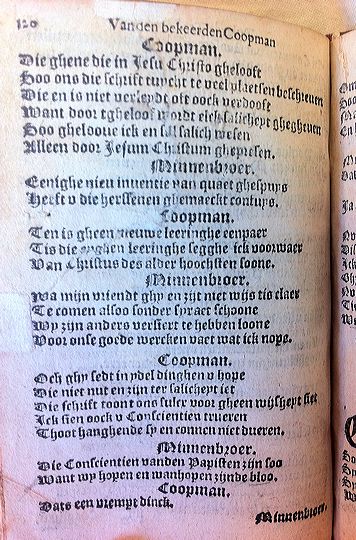 120 Van den bekeerden Coopman
Coopman.
Die ghene die in Jesu Christo ghelooft
Soo ons die schrift tuycht te veel plaetsen beschreven
Die en is niet verleydt oft oock verdooft
Want door tgheloof wordt elck salicheyt ghegheven
Soo gheloove ick en sal salich wesen
Alleen door Jesum Christum ghepresen.
Minnenbroer.
Eenighe nieu inventie van quaet ghespuys
Heeft v die herssenen ghemaeckt contuys.
Coopman.
Ten is gheen nieuwe leeringhe eenpaer
Tis die leeringhe segghe ick voorwaer
Van Christus des alder hoochsten soone.
Minnenbroer.
Wa mijn vriendt ghy en zijt niet wijs tis claer
Te comen alsoo sonder spraet schoone
Wy zijn anders versiert te hebben loone
Voor onse goede wercken vaet wat ick nope.
Coopman.
Och ghy sedt in ydel dinghen v hope
Die niet nut en zijn ter salicheyt iet
Die schrift toont ons sulcx voor gheen wijsheyt siet
Ick sien oock v Conscientien trueren
Thoot hanghende sy en connen niet dueren.
Minnenbroer.
Die Conscientien vanden Papisten zijn soo
Want wy hopen en wanhopen zijnde bloo.
Coopman.
Dats een vrempt dinck.
Minnenbroer.